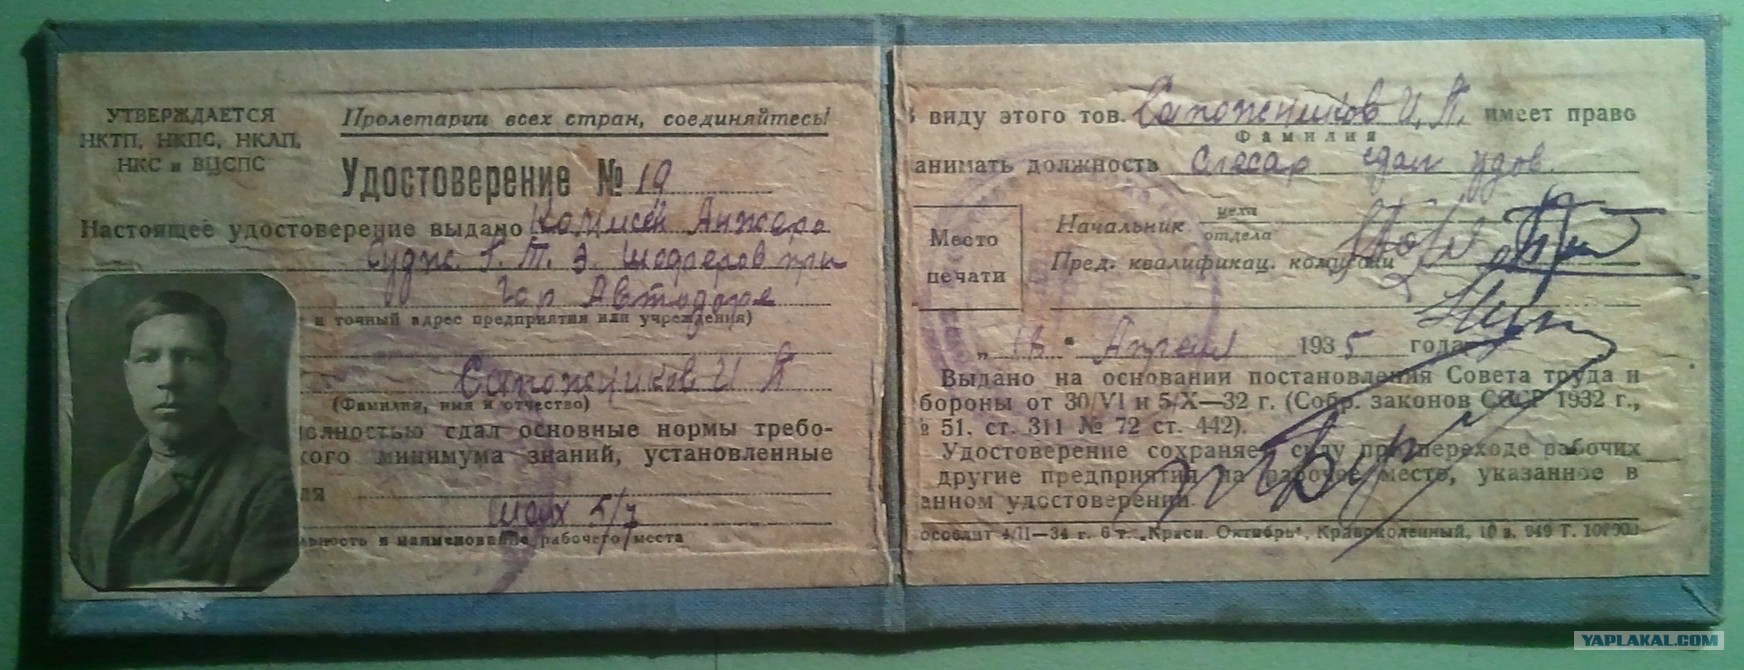 УТВЕРЖДАЕТСЯ
НКТП, НКПС, НКЛП,
НКС и ВЦСПС
Пролетарии всех стран, соединяйтесь!
Удостоверение № 19
Настоящее удостоверение выдано Комисей Анжеро
Суджс. Г. Т. Э. шоферов при
Гор Автодоре
и точный адрес предприятия или учреждения)
Сапожников И А
(Фамилия, имя и отчество)
олностью сдал основные нормы требо-
кого минимума знаний, установленные
ля
шоф 5/7
льность и наименование рабочего места
В виду этого тов. Сапожников И. А. имеет право
Фамилия
анимать должность слесар сдал удов.
Начальник цеха
отдела
Пред. квалификац. комиссии
Место
печати
„16" Апреля 1935 года
Выдано на основании постановления Совета труда и
бороны от 30/VI и 5/X—32 г. (Собр. законов СССР 1932 г.,
№ 51, ст. 311 № 72 ст. 442).
Удостоверение сохраняет силу при переходе рабочих
другие предприятия на рабочее место, указанное в
анном удостоверении.
4/II—34 г. 6 т. „Красн. Октябрь", 10 з. 949 Т.
YAPLAKAL.COM